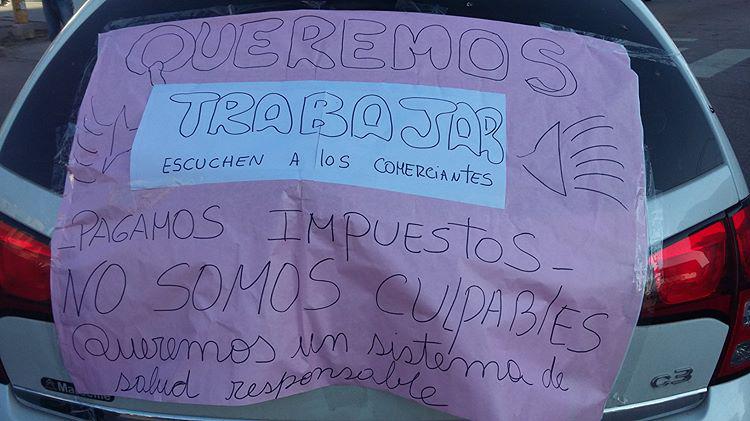 QUEREMOS
TRABAJAR
ESCUCHEN A los COMERCIANTES
_PAGAMOS IMPUESTOS_
NO SOMOS CUlPABlES
Queremos un sistema de
salud responsable
C3